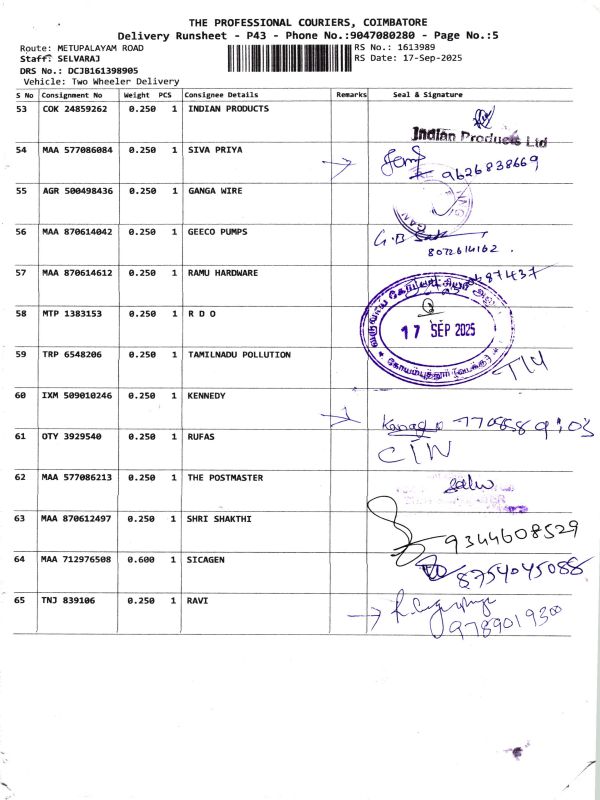 THE PROFESSIONAL COURIERS, COIMBATORE
Delivery Runsheet - P43 - Phone No.:9047080280 - Page No.:5
Route: METUPALAYAM ROAD RS No.: 1613989
Staff: SELVARAJ RS Date: 17-Sep-2025
DRS No.: DCJB161398905
Vehicle: Two Wheeler Delivery
S No Consignment No Weight PCS Consignee Details Remarks Seal & Signature
53 COK 24859262 0.250 1 INDIAN PRODUCTS
Indian Products Ltd
54 MAA 577086084 0.250 1 SIVA PRIYA
9626838669
55 AGR 500498436 0.250 1 GANGA WIRE
56 MAA 870614042 0.250 1 GEECO PUMPS
8072614162
57 MAA 870614612 0.250 1 RAMU HARDWARE
58 MTP 1383153 0.250 1 R D O
17 SEP 2025
59 TRP 6548206 0.250 1 TAMILNADU POLLUTION
60 IXM 509010246 0.250 1 KENNEDY
61 OTY 3929540 0.250 1 RUFAS
62 MAA 577086213 0.250 1 THE POSTMASTER
63 MAA 870612497 0.250 1 SHRI SHAKTHI
9344608529
64 MAA 712976508 0.600 1 SICAGEN
8754045088
65 TNJ 839106 0.250 1 RAVI
9789019300